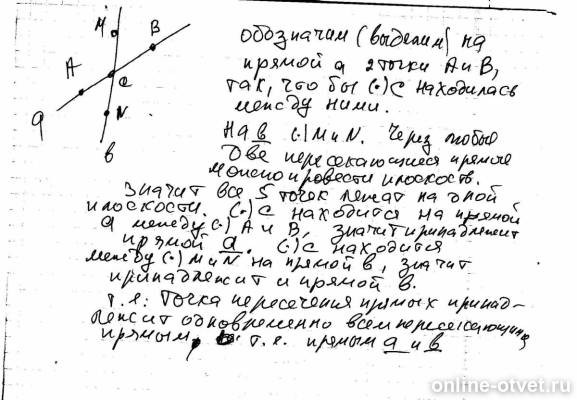 M
B
обозначим (выделим) на
прямой a 2 точки A и B,
A
C
так, что бы (•) C находилась
между ними.
N
a
На b (•) M и N. Через любые
в
две пересекающиеся прямые
можно провести плоскость.
Значит все 5 точек лежат на одной
плоскости. (•) C находится на прямой
a между (•) A и B, значит принадлежит
прямой a. (•) C находится
между (•) M и N на прямой в, значит
принадлежит и прямой в.
т.е: Точка пересечения прямых принад-
лежит одновременно всем пересекающимся
прямым, т.е. прямым a и в
online-otvet.ru